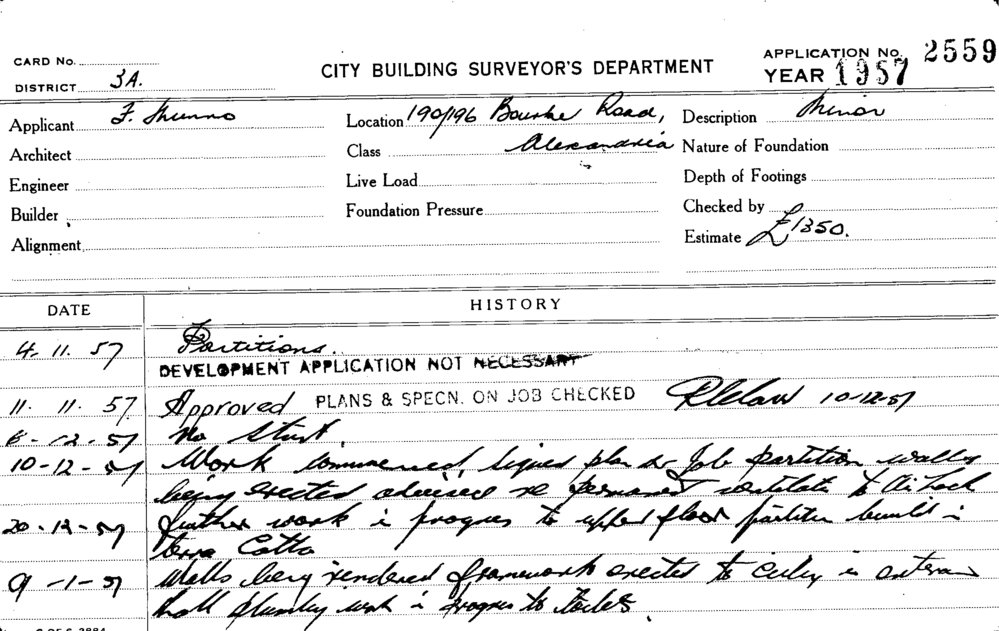 CARD No.
DISTRICT 3A.
CITY BUILDING SURVEYOR'S DEPARTMENT
APPLICATION No. 2559
YEAR 1957
Applicant F. Munro
Location 190/196 Bourke Road,
Description Minor
Architect
Class Alexandria
Nature of Foundation
Engineer
Live Load
Depth of Footings
Builder
Foundation Pressure
Checked by
Alignment
Estimate £1350.
DATE HISTORY
4. 11. 57 Partitions.
DEVELOPMENT APPLICATION NOT NECESSARY
11. 11. 57 Approved PLANS & SPECN. ON JOB CHECKED 10-12-57
6-12-57 No Start.
10-12-57 Work commenced, signed plan on Job partition walls
being erected advised re permanent to Air Lock
20-12-57 further work in progress to upper floor partition
terra Cotta
9-1-57 Walls being rendered framework erected to in
hall work in progress to toilets.